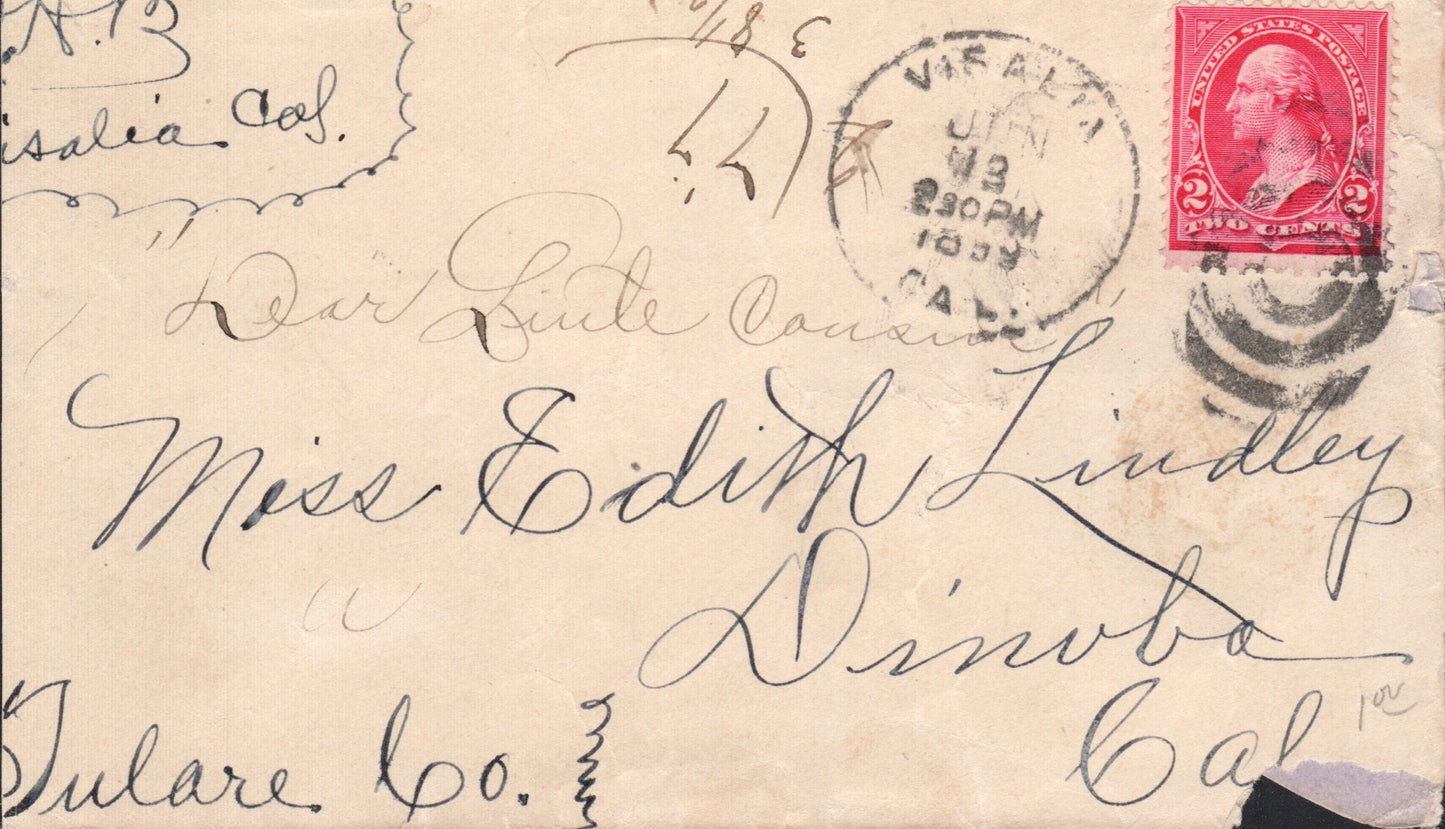 A.B
isalia Cal.
77
VISALIA
JUN
2 30 PM
CAL.
UNITED STATES POSTAGE
2 2
TWO CENTS
"Dear Little Cousin"
Miss Edith Lindley
Dinuba
Cal
Tulare Co.